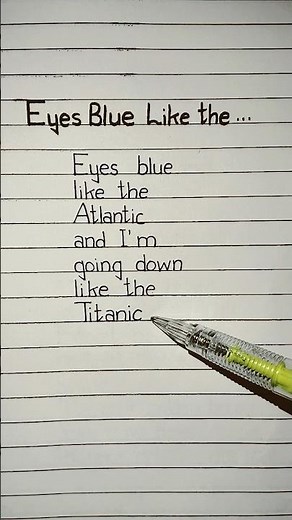 Eyes Blue Like the...
Eyes blue
like the
Atlantic
and I'm
going down
like the
Titanic